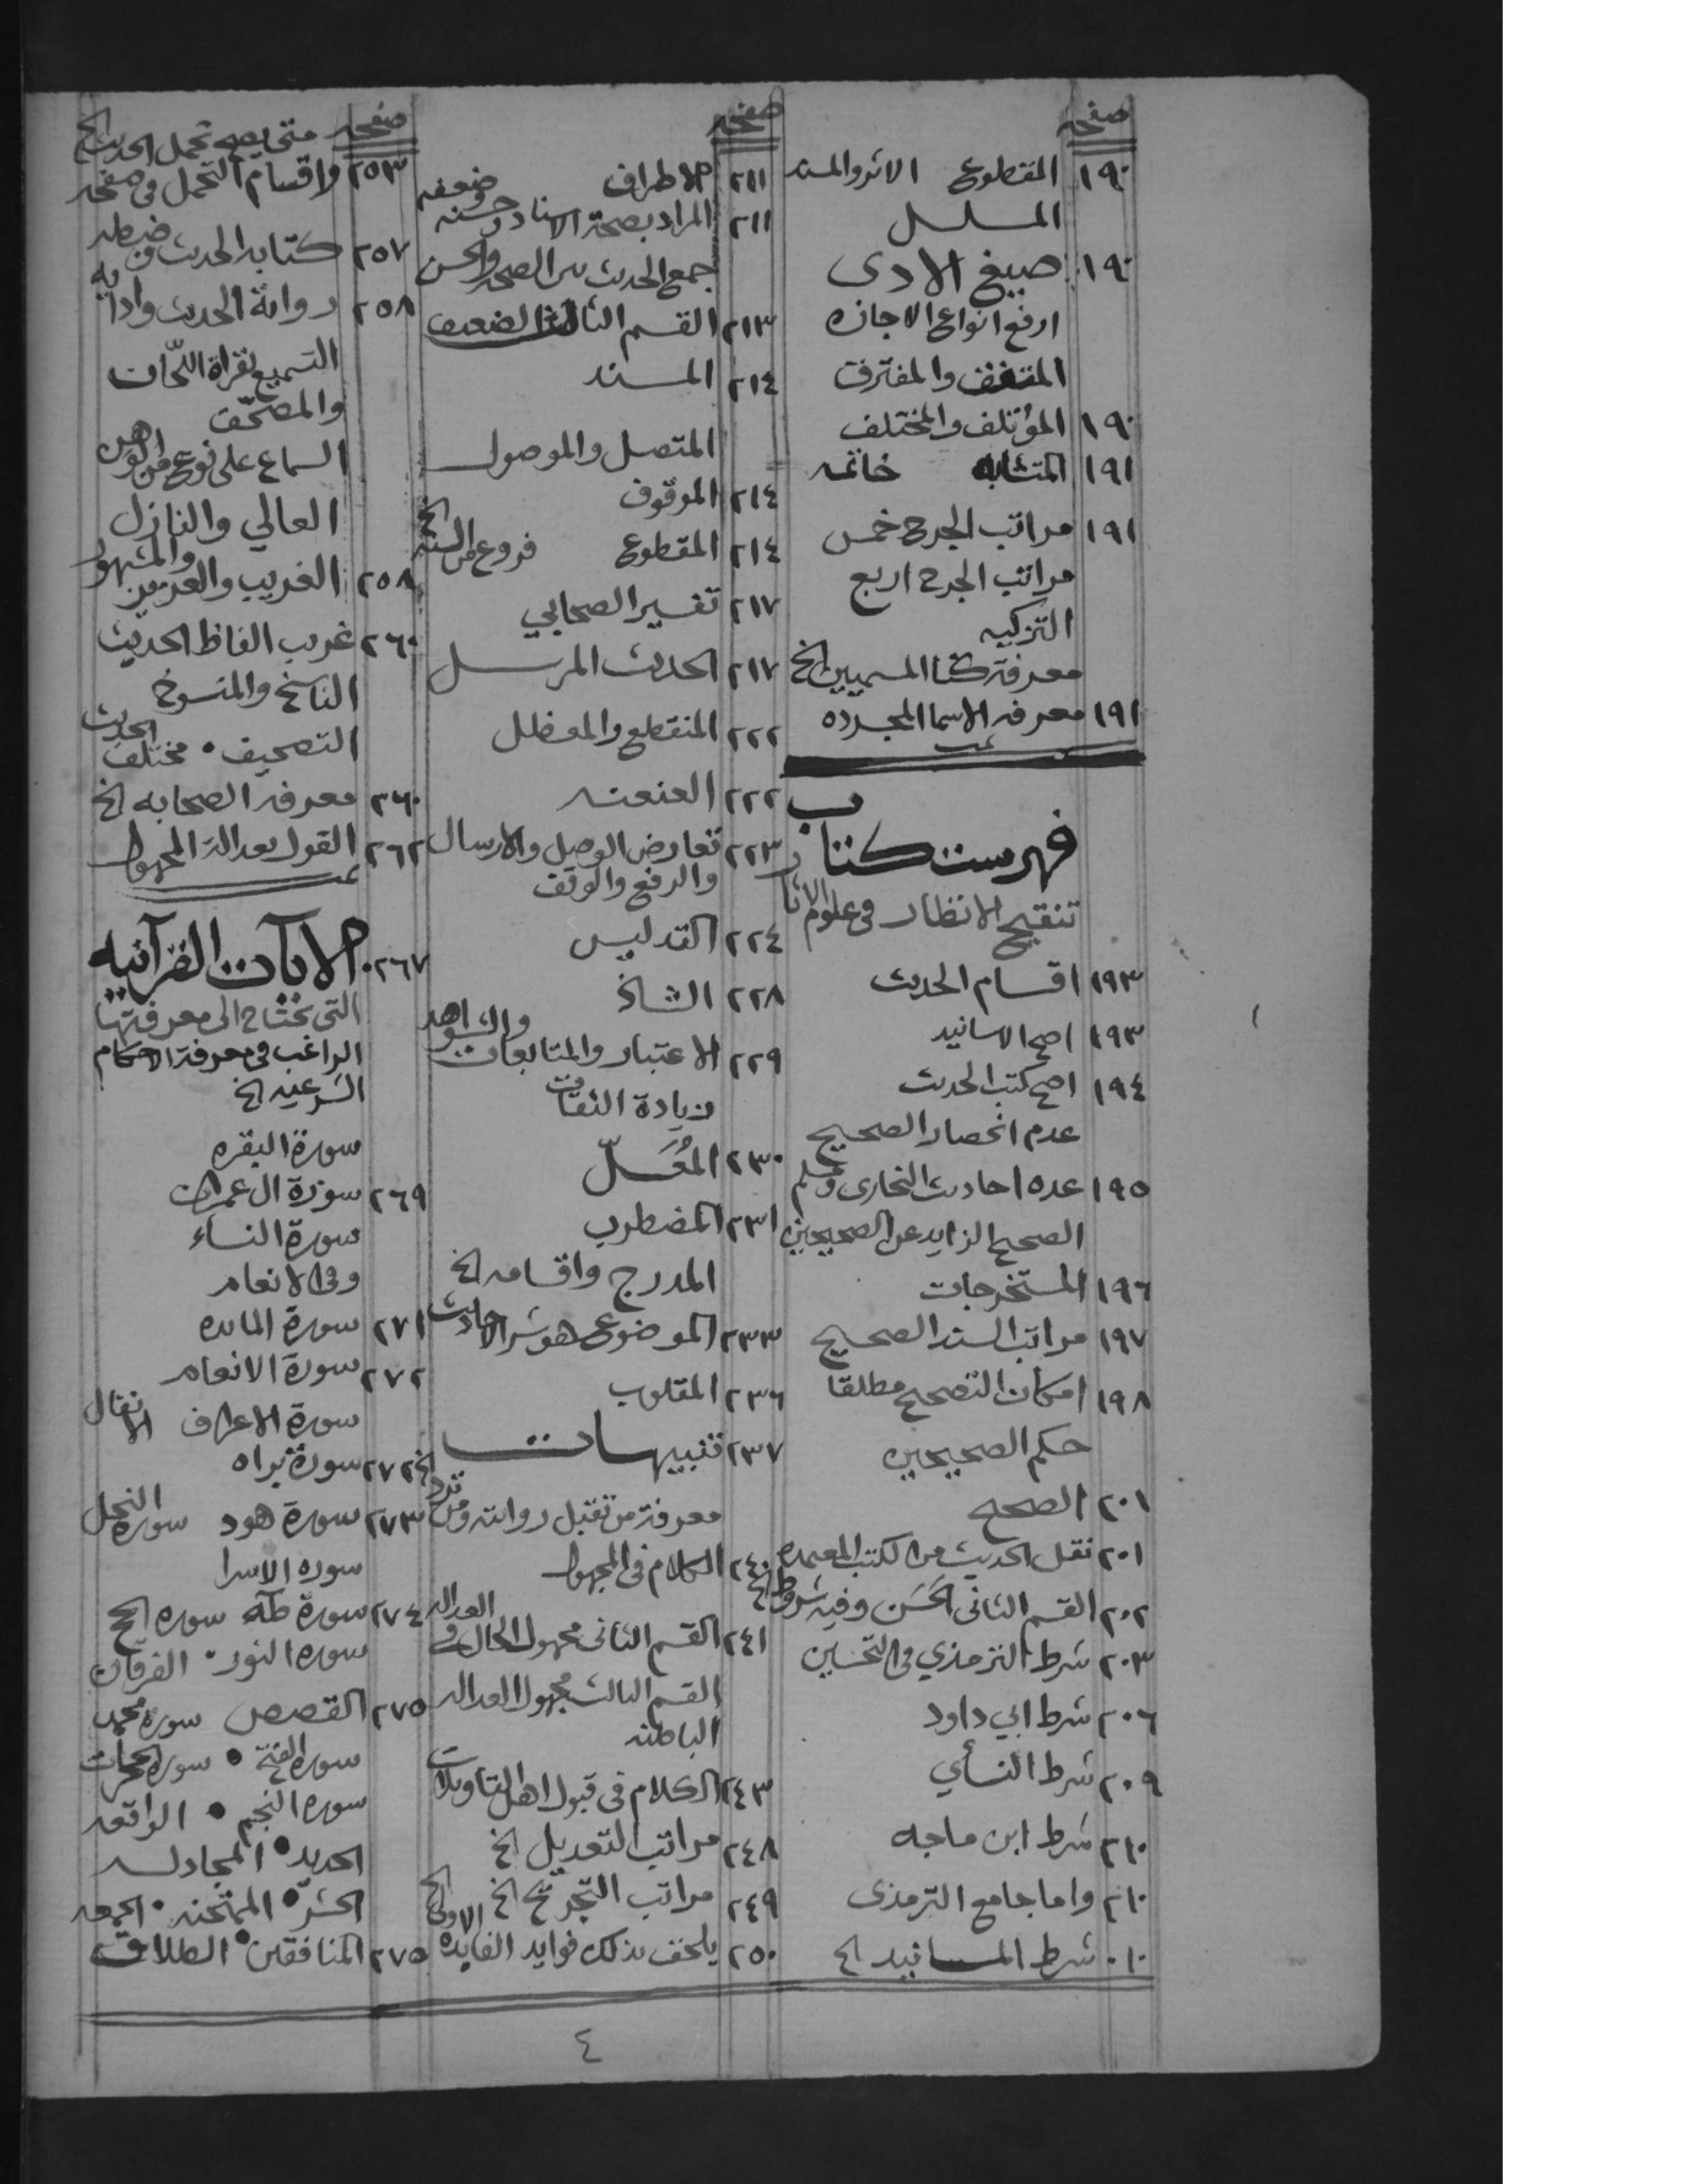 صفحه
١٩٠ المقطوع الاثر والمسند
المسلسل
١٩٠ صيغ الادى
ارفع انواع الاجازه
المتفق والمفترق
١٩٠ المؤتلف والمختلف
١٩١ المتشابه خاتمه
١٩١ مراتب الجرح خمس
مراتب الجرح اربع
التزكيه
معرفة كنا المسميين الخ
١٩١ معرفه الاسما المجرده
تمت
فهرست كتاب
تنقيح الانظار في علوم الاثار
١٩٣ اقسام الحديث
١٩٣ اصح الاسانيد
١٩٤ اصح كتب الحديث
عدم انحصار الصحيح
١٩٥ عده احاديث البخارى ومسلم
الصحيح الزايد عن الصحيحين
١٩٦ المستخرجات
١٩٧ مراتب السند الصحيح
١٩٨ امكان التصحيح مطلقا
حكم الصحيحين
٢٠١ الصحه
٢٠١ نقل الحديث من الكتب المعتمده
٢٠٢ القسم الثانى الحسن وفيه شروط الخ
٢٠٣ شرط الترمذي في التحسين
٢٠٦ شرط ابي داود
٢٠٩ شرط النسأي
٢١٠ شرط ابن ماجه
٢١٠ واما جامع الترمذى
شرط المسانيد الخ
صفحه
٢١١ الاطراف
٢١١ المراد بصحة الاسناد وحسنه وضعفه
جمع الحديث بين الصحه والحسن
٢١٣ القسم الثالث الضعيف
٢١٤ المسند
المتصل والموصول
٢١٤ الموقوف
٢١٤ المقطوع فروع من السنه الخ
٢١٧ تفسير الصحابي
٢١٧ الحديث المرسل
٢٢٢ المنقطع والمعظل
٢٢٢ العنعنه
٢٢٣ تعارض الوصل والارسال
والرفع والوقف
٢٢٤ التدليس
٢٢٨ الشاذ
٢٢٩ الاعتبار والمتابعات والشواهد
زيادة الثقات
٢٣٠ المُعَلّ
٢٣١ المضطرب
المدرج واقسامه الخ
٢٣٣ الموضوع هو شر الاحاديث
٢٣٦ المقلوب
٢٣٧ تنبيهات
معرفة من تقبل روايته ومن ترد الخ
٢٤٠ الكلام في المجهول
٢٤١ القسم الثانى مجهول الحال في العداله
القسم الثالث مجهول العداله
الباطنه
٢٤٣ الكلام في قبول اهل التاويلات
٢٤٨ مراتب التعديل الخ
٢٤٩ مراتب التجريح الخ
٢٥٠ يلحق بذلك فوايد الفايده الاولى الخ
صفحه
متى يصح تحمل الحديث الخ
٢٥٣ واقسام التحمل في صفحه
٢٥٧ كتابه الحديث وضبطه
٢٥٨ رواية الحديث وادايه
التسميع بقراة اللّحان
والمصحّف
السماع على نوع من الوهن
العالي والنازل
٢٥٨ الغريب والعزيز والمشهور
٢٦٠ غريب الفاظ الحديث
الناسخ والمنسوخ
التصحيف • مختلف الحديث
٢٦٠ معرفة الصحابه الخ
٢٦٢ القول بعدالة المجهول
تمت
٢٦٧ الآيات القرآنيه
التى يحتاج الى معرفتها
الراغب في معرفة الاحكام
الشرعيه الخ
سورة البقره
٢٦٩ سورة ال عمران
سورة النساء
وفي الانعام
٢٧١ سورة المايده
٢٧٢ سورة الانعام
سورة الاعراف الانفال
٢٧٢ سورة براه
٢٧٣ سورة هود سوره النحل
سوره الاسرا
٢٧٤ سورة طه سوره الحج
سوره النور • الفرقان
٢٧٥ القصص سورة محمد
سوره الفتح • سورة الحجرات
سوره النجم • الواقعه
الحديد • المجادله
الحشر • الممتحنه • الجمعه
٢٧٥ المنافقين • الطلاق
٤